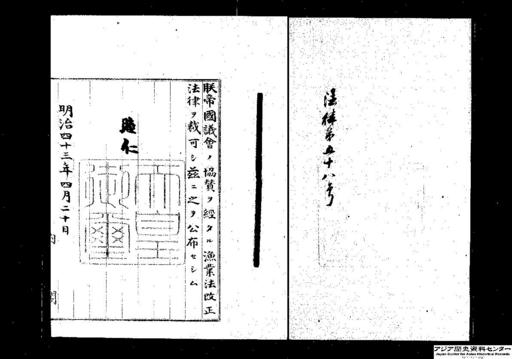 法律第五十八号
朕帝國議會ノ協賛ヲ經タル漁業法改正
法律ヲ裁可シ茲ニ之ヲ公布セシム
睦仁
天皇御璽
明治四十三年四月二十日
内閣
アジア歴史資料センター
Japan Center for Asian Historical Records